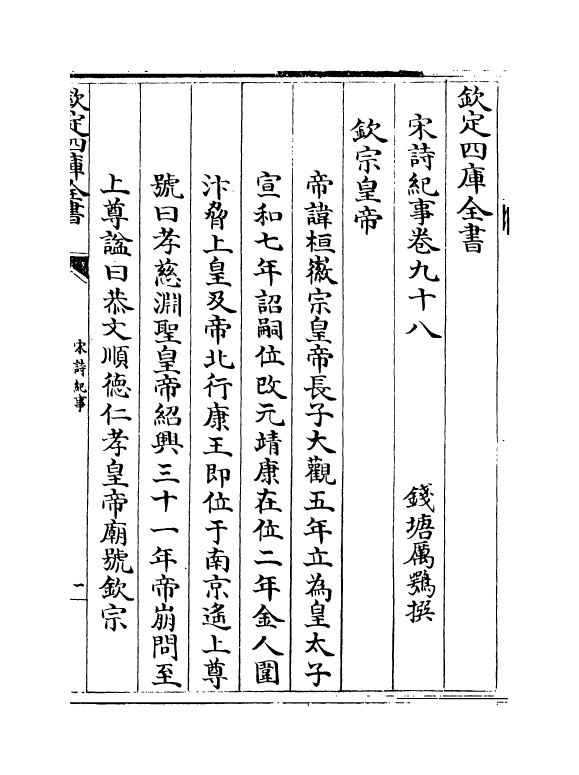 欽定四庫全書
宋詩紀事卷九十八
錢塘厲鶚撰
欽宗皇帝
帝諱桓徽宗皇帝長子大觀五年立為皇太子
宣和七年詔嗣位改元靖康在位二年金人圍
汴脅上皇及帝北行康王即位于南京遙上尊
號曰孝慈淵聖皇帝紹興三十一年帝崩問至
上尊諡曰恭文順德仁孝皇帝廟號欽宗
欽定四庫全書
宋詩紀事